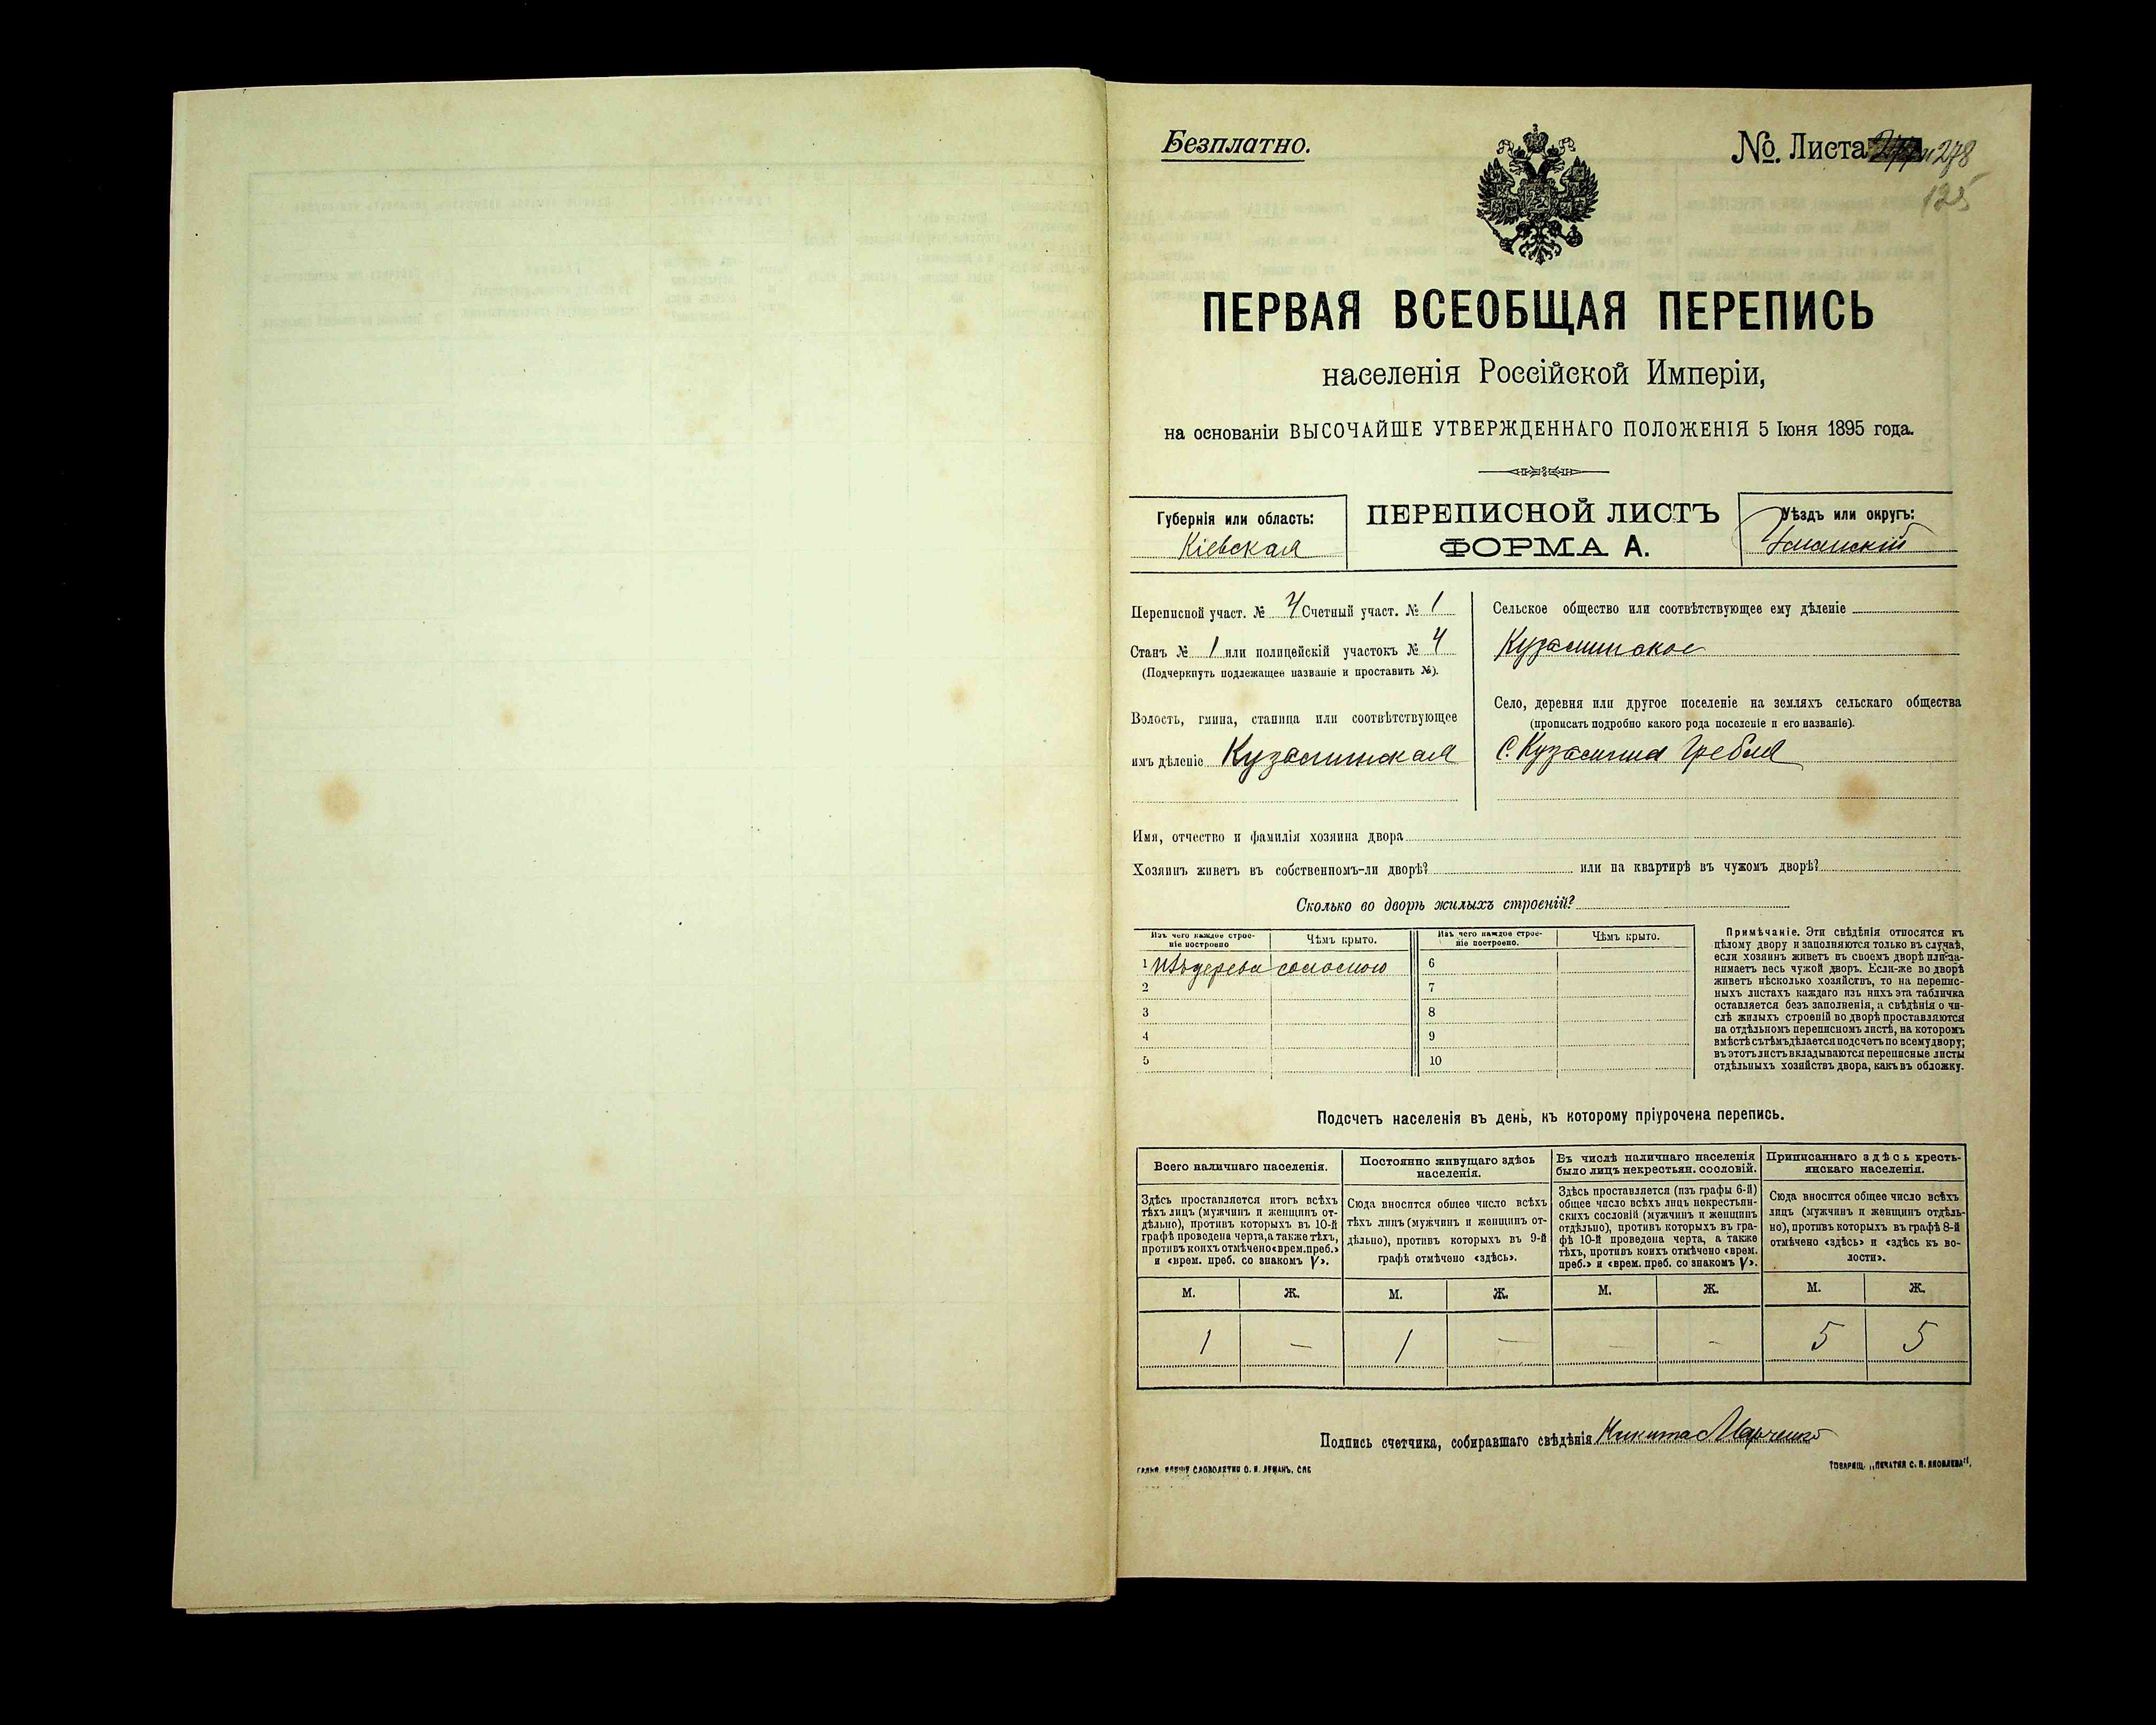 Безплатно.
№ Листа 278
125
ПЕРВАЯ ВСЕОБЩАЯ ПЕРЕПИСЬ
населенія Россійской Имперіи,
на основаніи ВЫСОЧАЙШЕ УТВЕРЖДЕННАГО ПОЛОЖЕНІЯ 5 Іюня 1895 года.
Губернія или область:
Кіевская
ПЕРЕПИСНОЙ ЛИСТЪ
ФОРМА А.
Уѣздъ или округъ:
Уманскій
Переписной участ. № 4 Счетный участ. № 1
Станъ № 1 или полицейскій участокъ № 4
(Подчеркнуть подлежащее названіе и проставить №).
Волость, гмина, станица или соотвѣтствующее
имъ дѣленіе Кузьминская
Сельское общество или соотвѣтствующее ему дѣленіе
Кузьминское
Село, деревня или другое поселеніе на земляхъ сельскаго общества
(прописать подробно какого рода поселеніе и его названіе).
С. Кузьмина Гребля
Имя, отчество и фамилія хозяина двора
Хозяинъ живетъ въ собственномъ-ли дворѣ? или на квартирѣ въ чужомъ дворѣ?
Сколько во дворѣ жилыхъ строеній?
Изъ чего каждое строе-
ніе построено
Чѣмъ крыто.
Изъ чего каждое строе-
ніе построено.
Чѣмъ крыто.
1 изъ дерева соломою 6
2 7
3 8
4 9
5 10
Примѣчаніе. Эти свѣдѣнія относятся къ
цѣлому двору и заполняются только въ случаѣ,
если хозяинъ живетъ въ своемъ дворѣ или за-
нимаетъ весь чужой дворъ. Если-же во дворѣ
живетъ нѣсколько хозяйствъ, то на перепис-
ныхъ листахъ каждаго изъ нихъ эта табличка
оставляется безъ заполненія, а свѣдѣнія о чи-
слѣ жилыхъ строеній во дворѣ проставляются
на отдѣльномъ переписномъ листѣ, на которомъ
вмѣстѣ съ тѣмъ дѣлается подсчетъ по всему двору;
въ этотъ листъ вкладываются переписные листы
отдѣльныхъ хозяйствъ двора, какъ въ обложку.
Подсчетъ населенія въ день, къ которому пріурочена перепись.
Всего наличнаго населенія.
Здѣсь проставляется итогъ всѣхъ
тѣхъ лицъ (мужчинъ и женщинъ от-
дѣльно), противъ которыхъ въ 10-й
графѣ проведена черта, а также тѣхъ,
противъ коихъ отмѣчено «врем. преб.»
и «врем. преб. со знакомъ V».
Постоянно живущаго здѣсь
населенія.
Сюда вносится общее число всѣхъ
тѣхъ лицъ (мужчинъ и женщинъ от-
дѣльно), противъ которыхъ въ 9-й
графѣ отмѣчено «здѣсь».
Въ числѣ наличнаго населенія
было лицъ некрестьян. сословій.
Здѣсь проставляется (изъ графы 6-й)
общее число всѣхъ лицъ некрестьян-
скихъ сословій (мужчинъ и женщинъ
отдѣльно), противъ которыхъ въ гра-
фѣ 10-й проведена черта, а также
тѣхъ, противъ коихъ отмѣчено «врем.
преб.» и «врем. преб. со знакомъ V».
Приписаннаго здѣсь кресть-
янскаго населенія.
Сюда вносится общее число всѣхъ
лицъ (мужчинъ и женщинъ отдѣль-
но), противъ которыхъ въ графѣ 8-й
отмѣчено «здѣсь» и «здѣсь къ во-
лости».
М. Ж. М. Ж. М. Ж. М. Ж.
1 — 1 — — — 5 5
Подпись счетчика, собиравшаго свѣдѣнія Никита Марченко
СЛОВОЛИТНИ О. И. ЛЕМАНЪ, СПБ
ТОВАРИЩ. „ПЕЧАТНЯ С. П. ЯКОВЛЕВА".